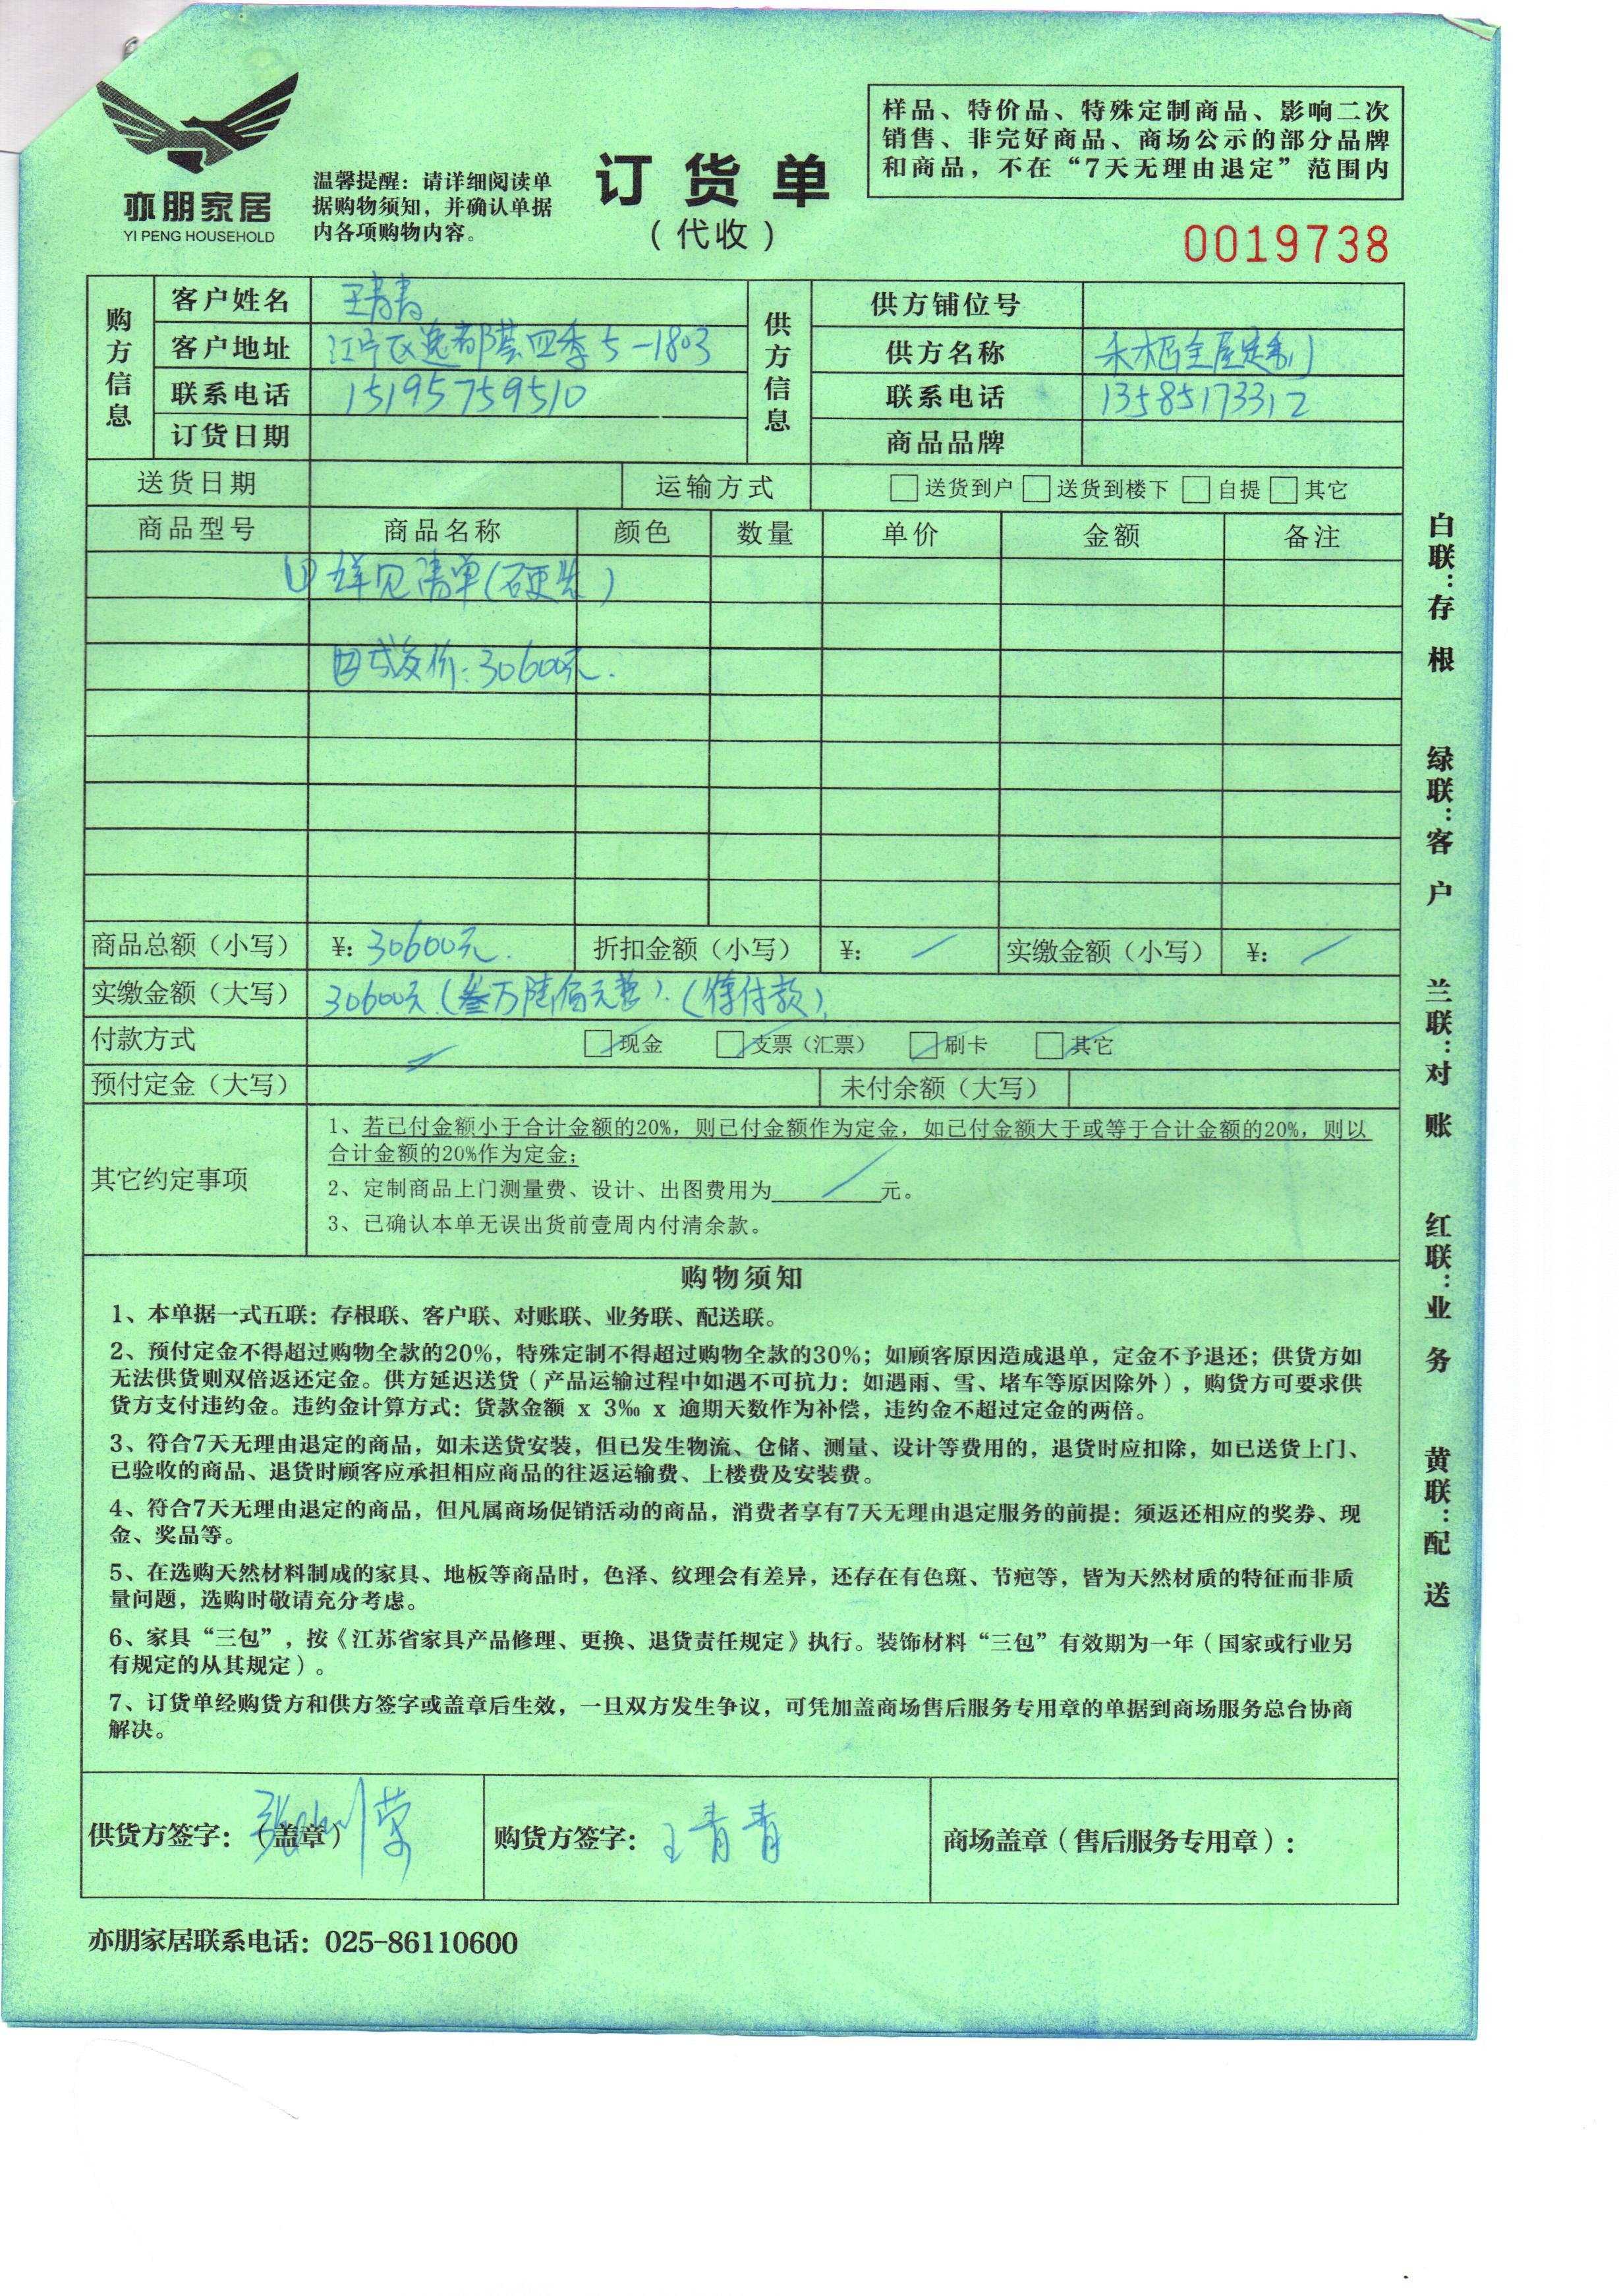 亦朋家居
YI PENG HOUSEHOLD
温馨提醒：请详细阅读单
据购物须知，并确认单据
内各项购物内容。
订货单
（代收）
样品、特价品、特殊定制商品、影响二次
销售、非完好商品、商场公示的部分品牌
和商品，不在“7天无理由退定”范围内
0019738
购方信息
客户姓名 王青青
客户地址 江宁区逸都荟四季5-1803
联系电话 15195759510
订货日期
供方信息
供方铺位号
供方名称 全屋定制
联系电话 13585173312
商品品牌
送货日期 运输方式 □送货到户 □送货到楼下 □自提 □其它
商品型号 商品名称 颜色 数量 单价 金额 备注
详见清单(硬装)
成交价：30600元.
商品总额（小写） ¥: 30600元. 折扣金额（小写） ¥: / 实缴金额（小写） ¥: /
实缴金额（大写） 30600元.(叁万陆佰元整).(待付款).
付款方式 □现金 □支票（汇票） □刷卡 □其它
预付定金（大写） 未付余额（大写）
其它约定事项
1、若已付金额小于合计金额的20%，则已付金额作为定金，如已付金额大于或等于合计金额的20%，则以
合计金额的20%作为定金；
2、定制商品上门测量费、设计、出图费用为 / 元。
3、已确认本单无误出货前壹周内付清余款。
购物须知
1、本单据一式五联：存根联、客户联、对账联、业务联、配送联。
2、预付定金不得超过购物全款的20%，特殊定制不得超过购物全款的30%；如顾客原因造成退单，定金不予退还；供货方如
无法供货则双倍返还定金。供方延迟送货（产品运输过程中如遇不可抗力：如遇雨、雪、堵车等原因除外），购货方可要求供
货方支付违约金。违约金计算方式：货款金额 x 3‰ x 逾期天数作为补偿，违约金不超过定金的两倍。
3、符合7天无理由退定的商品，如未送货安装，但已发生物流、仓储、测量、设计等费用的，退货时应扣除，如已送货上门、
已验收的商品、退货时顾客应承担相应商品的往返运输费、上楼费及安装费。
4、符合7天无理由退定的商品，但凡属商场促销活动的商品，消费者享有7天无理由退定服务的前提：须返还相应的奖券、现
金、奖品等。
5、在选购天然材料制成的家具、地板等商品时，色泽、纹理会有差异，还存在有色斑、节疤等，皆为天然材质的特征而非质
量问题，选购时敬请充分考虑。
6、家具“三包”，按《江苏省家具产品修理、更换、退货责任规定》执行。装饰材料“三包”有效期为一年（国家或行业另
有规定的从其规定）。
7、订货单经购货方和供方签字或盖章后生效，一旦双方发生争议，可凭加盖商场售后服务专用章的单据到商场服务总台协商
解决。
供货方签字：（盖章）
购货方签字：王青青
商场盖章（售后服务专用章）：
亦朋家居联系电话：025-86110600
白联：存根
绿联：客户
兰联：对账
红联：业务
黄联：配送